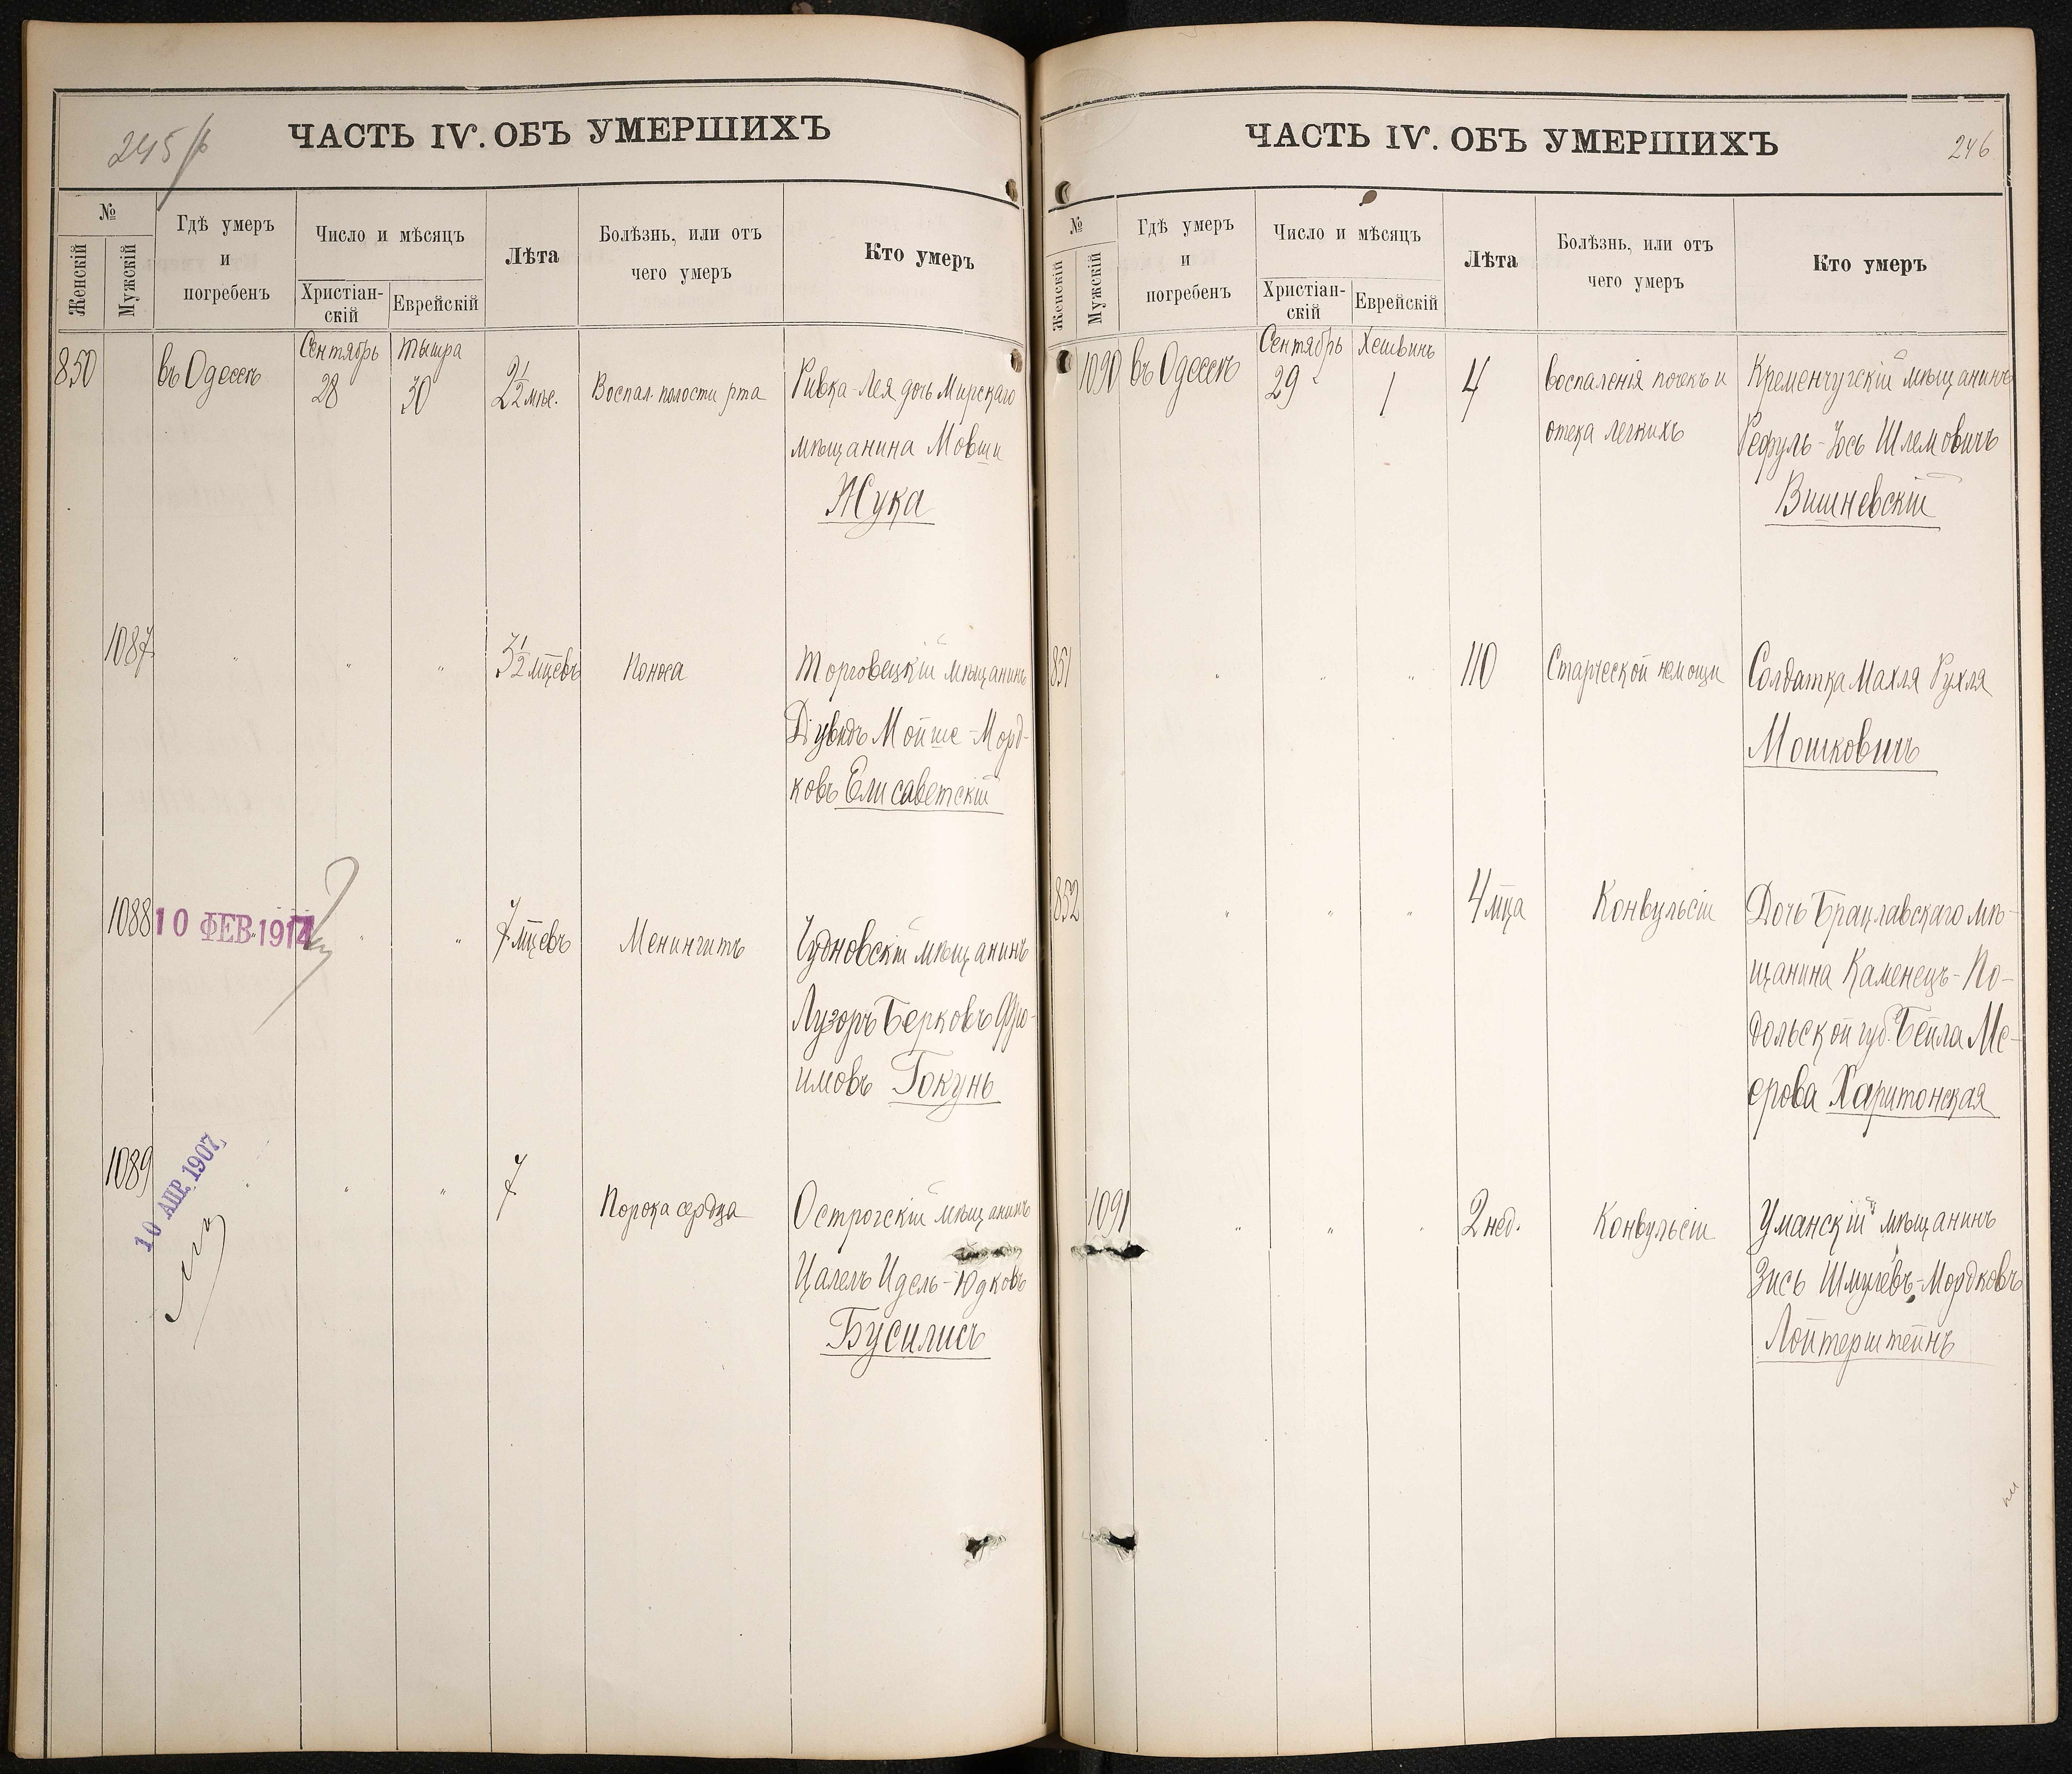 245
ЧАСТЬ IV. ОБЪ УМЕРШИХЪ
№
Женскій
Мужскій
Гдѣ умеръ
и
погребенъ
Число и мѣсяцъ
Христіан-
скій
Еврейскій
Лѣта
Болѣзнь, или отъ
чего умеръ
Кто умеръ
850
въ Одессѣ
Сентябрь
28
Тышра
30
2 1/2 мѣс.
Воспал. полости рта
Ривка-Лея дочь Мирскаго
мѣщанина Мовши
Жука
1087
" " "
3 1/2 мцевъ
Поноса
Торговецкій мѣщанинъ
Дувидъ Мойше-Морд-
ковъ Елисаветскій
1088
10 ФЕВ 1914
" "
7 мцевъ
Менингитъ
Чудновскій мѣщанинъ
Лузоръ Берковъ Фро-
имовъ Гокунь
1089
10 АПР. 1907
" " "
7
Порока сердца
Острогскій мѣщанинъ
Цалель Идель-Юдковъ
Бусилисъ
ЧАСТЬ IV. ОБЪ УМЕРШИХЪ
246
№
Женскій
Мужскій
Гдѣ умеръ
и
погребенъ
Число и мѣсяцъ
Христіан-
скій
Еврейскій
Лѣта
Болѣзнь, или отъ
чего умеръ
Кто умеръ
1090
въ Одессѣ
Сентябрь
29
Хешвинъ
1
4
воспаленія почекъ и
отека легкихъ
Кременчугскій мѣщанинъ
Рефуль-Іось Шлемовичъ
Вишневскій
851
" " "
110
Старческой немощи
Солдатка Махля Рухля
Мошковичъ
852
" " "
4 мца
Конвульсіи
Дочь Брацлавскаго мѣ-
щанина Каменецъ-По-
дольской губ. Бейла Ме-
ерова Харитонская
1091
" " "
2 нед.
Конвульсіи
Уманскій мѣщанинъ
Зись Шмулевъ-Мордковъ
Лойтерштейнъ